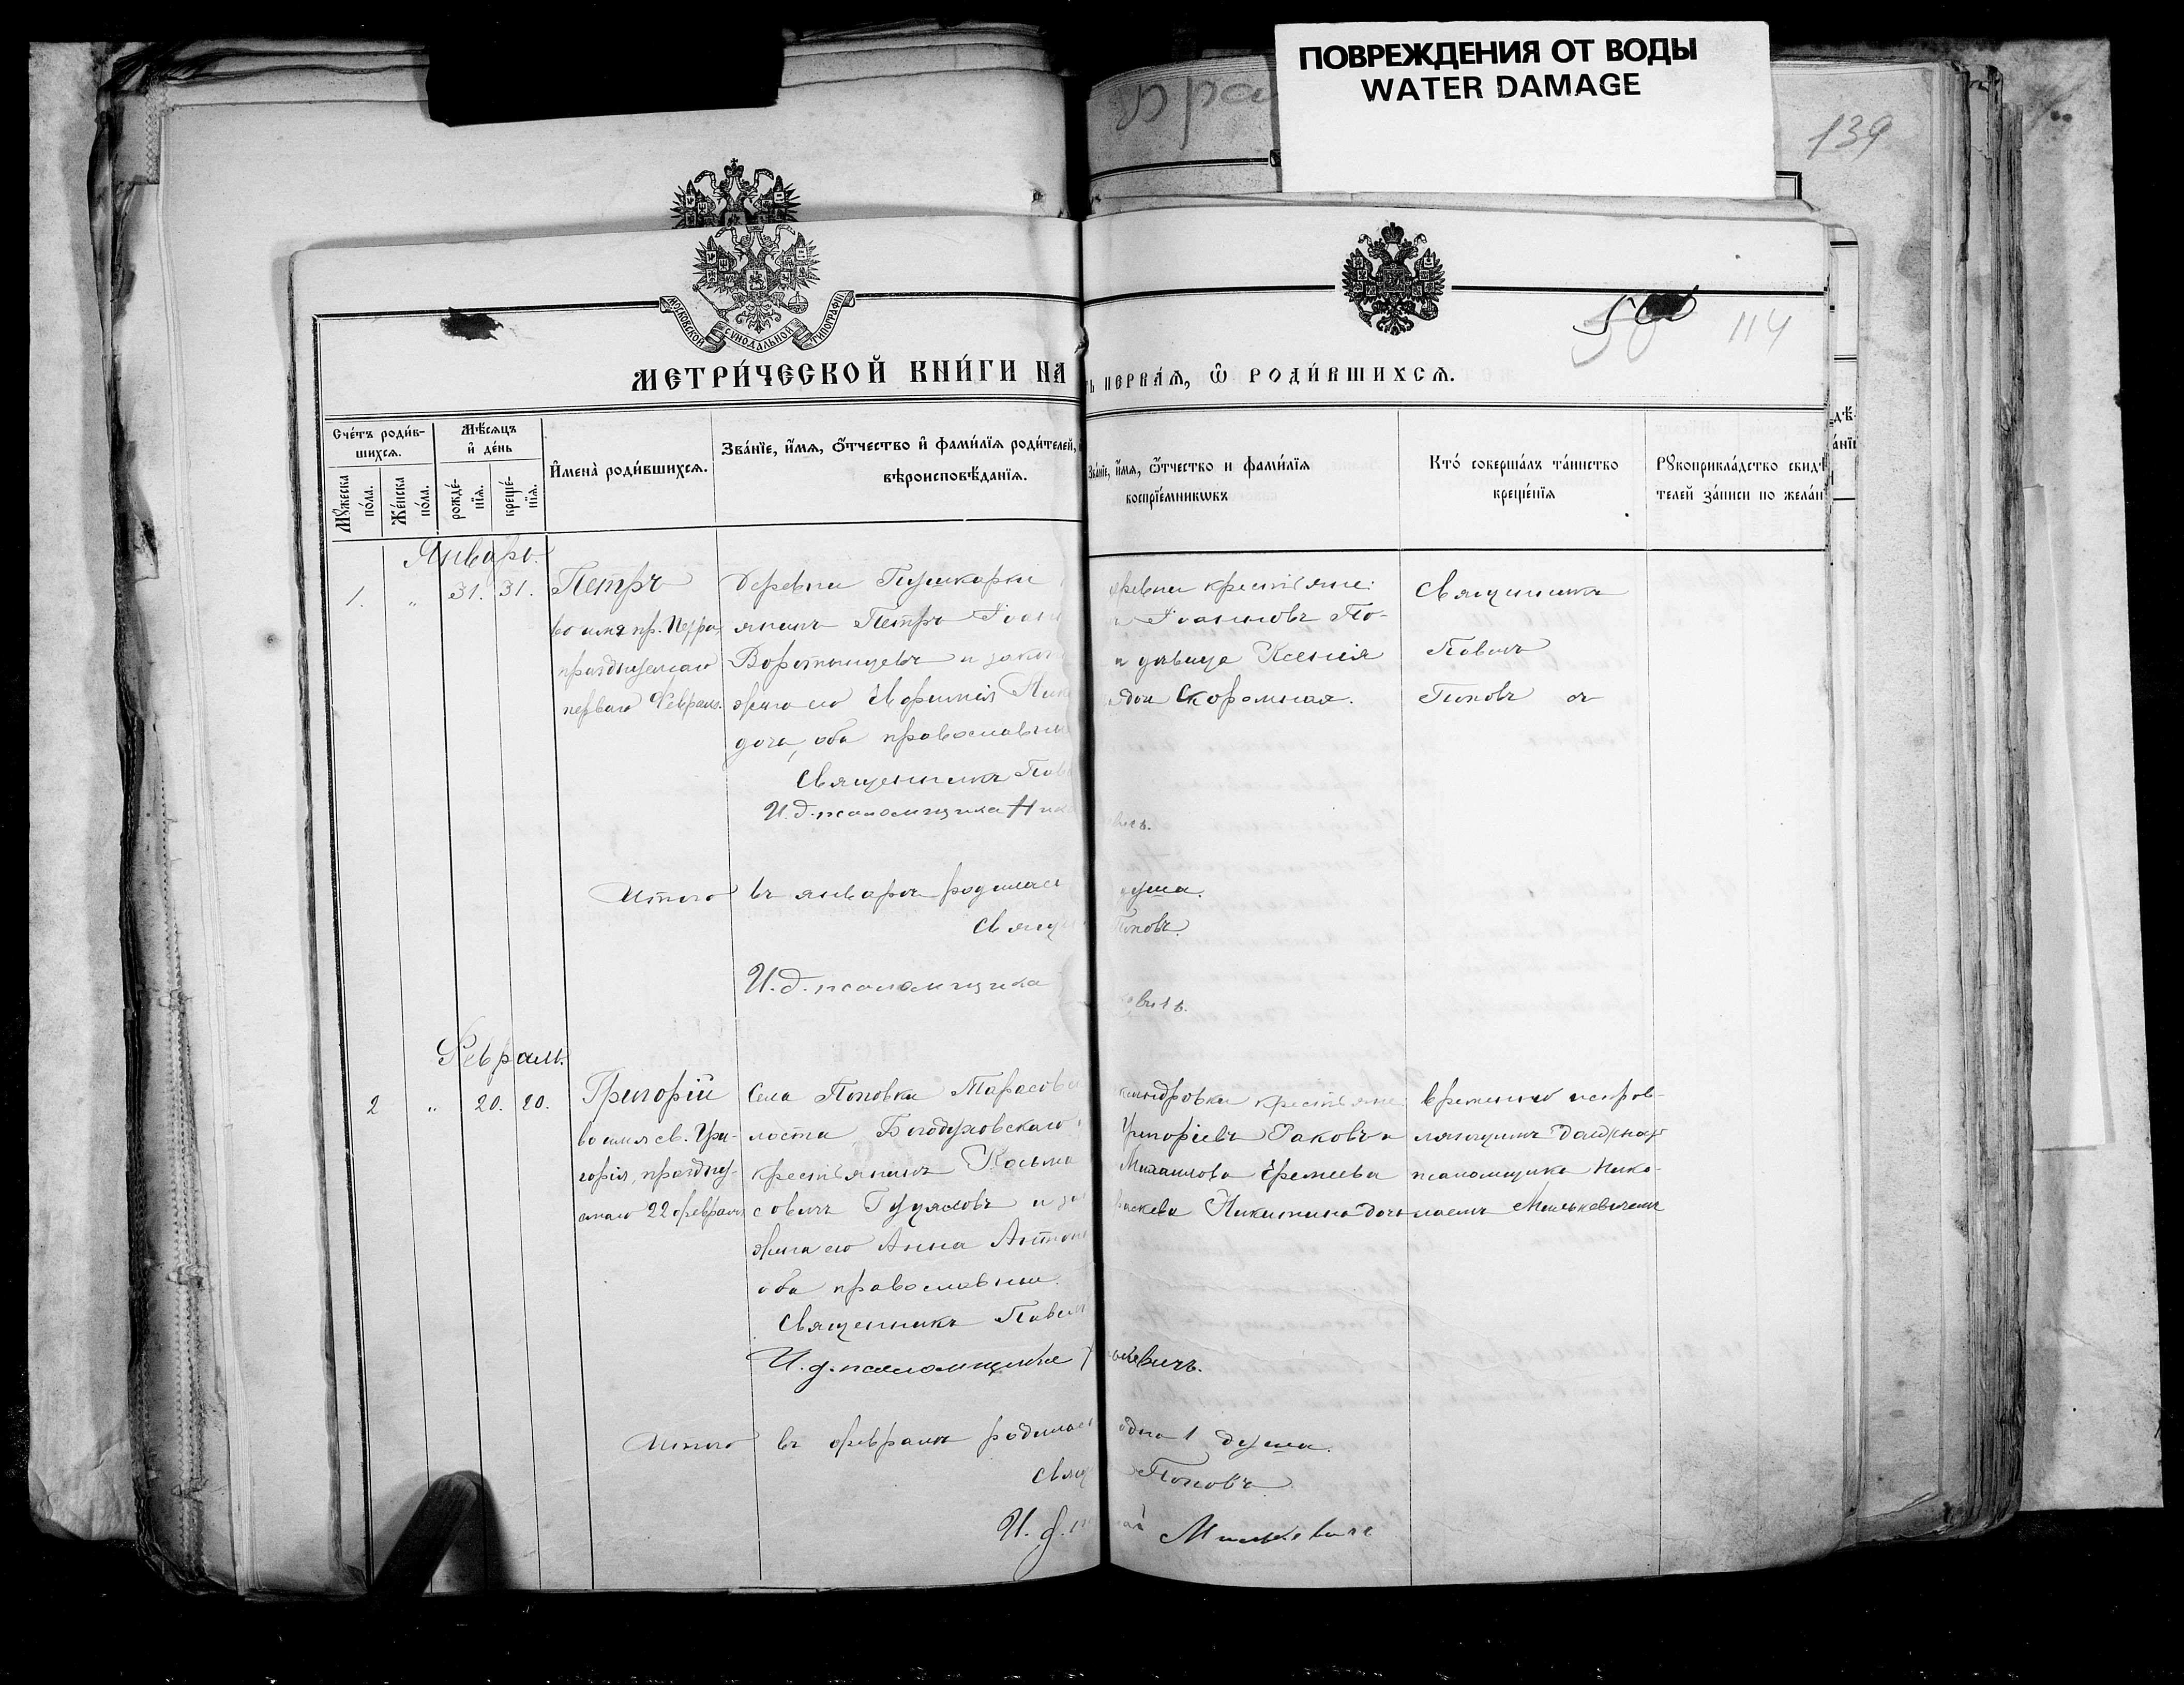 ПОВРЕЖДЕНИЯ ОТ ВОДЫ
WATER DAMAGE
139
114
МОСКОВСКОЙ СѴНОДАЛЬНОЙ ТИПОГРАФІИ
МЕТРИ́ЧЕСКОЙ КНИ́ГИ НА
ПЕРВА́Ѧ, Ѽ РОДИ́ВШИХСѦ.
Сче́тъ роди́в-
шихсѧ.
Мꙋжеска по́ла.
Же́нска по́ла.
Мѣ́сѧцъ
и҆ де́нь
рожде́-
нїѧ.
креще́-
нїѧ.
И҆мена̀ роди́вшихсѧ.
Зва́нїе, и҆́мѧ, ѻ҆́тчество и҆ фами́лїѧ роди́телей,
вѣроисповѣ́данїѧ.
Зва́нїе, и҆́мѧ, ѻ҆́тчество и фами́лїѧ
воспрїе́мникѡвъ
Кто́ соверша́лъ та́инство
креще́нїѧ
Рꙋкоприкла́дство свидѣ́
телей за́писи по жела́н
Январь.
1. " 31. 31.
Петръ
во имя пр. Петра,
празднуемаго
перваго Февраля.
Деревни Пушкарки
янинъ Петръ Іоан
Воротынцевъ и закон
жена его Ник
дочь, оба православные
Священникъ Пав
И. д. псаломщика Ник
крестьяне:
Іоанновъ По-
и дѣвица Ксенія
Скоромная.
Священникъ
Павелъ
Поповъ съ
Итого въ январѣ родилась
душа.
Свящ
Поповъ.
И. д. псаломщика
Февраль.
2 " 20. 20.
Григорій
во имя св. Гри-
горія, праздну-
емаго 22 февраля
Села Поповки Тарасов
лости Богодуховскаго
крестьянинъ Косьма
совичъ и за
жена его Анна Антон
оба православные.
Священникъ Павелъ
И. д. псаломщика
крестьяне:
Григорьевъ Яковъ и
Михаилова Еремеева
Никитина дочь
временно исправ-
ляющимъ должность
псаломщика Нико-
лаемъ Милькевичемъ
ькевичъ.
Итого въ февралѣ родилась
одна 1 душа.
Свящ
Поповъ
И. д. п
Милькевичъ